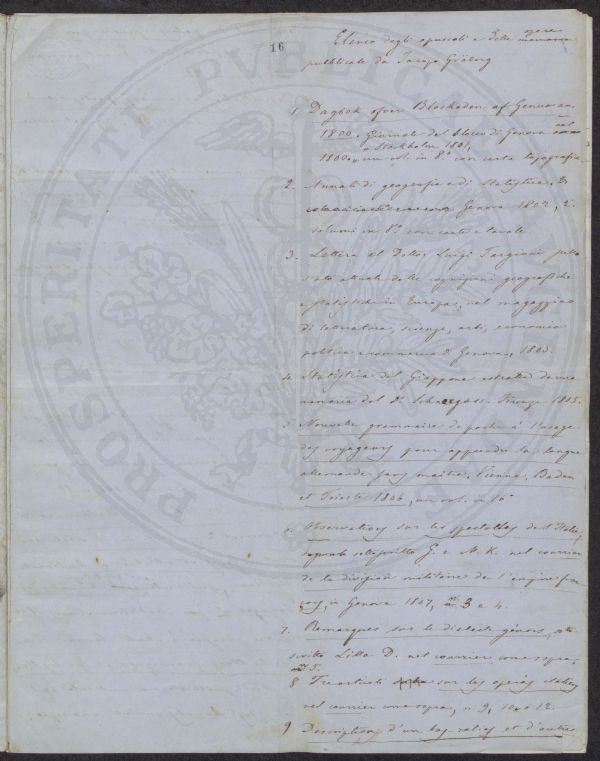 16
Elenco degli opuscoli e delle opere memorie
pubblicate da Jacopo Gråberg
1. Dagbok öfver Blockaden af Genua an.
1800. Giornale del blocco di Genova nel
a Stockholm 1801,
1800, un vol. in 8.° con carta topografica
2. Annali di geografia e di statistica,
Genova 1802, 2
volumi in 8.° con carte e tavole
3. Lettera al Dottor Luigi Targioni sullo
stato attuale delle cognizioni geografiche
e statistiche in Europa, nel magazzino
di letteratura, scienze, arti, economia
politica e commercio di Genova, 1805.
4. Statistica del Giappone estratta da una
memoria del Sr. Firenze 1805.
5. Nouvelle grammaire de poche à l'usage
des voyageurs pour apprendre la langue
allemande sans maître, Vienne, Baden
et Trieste 1806, un vol. in 16
6. Observations sur les spectacles de l'Italie,
sottoscritto G. e N. K. nel courrier
de la division militaire de l'empire fran
çais, in Genova 1807, n.i 3 e 4.
7. Remarques sur le dialecte génois, sotto
scritto Lilla D. nel courrier come sopra,
n. 5.
8 Tre articoli sur les opéras italiens
nel courrier come sopra, n. 9, 10 e 12.
9 Description d'un bas-relief et d'autres
PROSPERITATI PUBLICAE